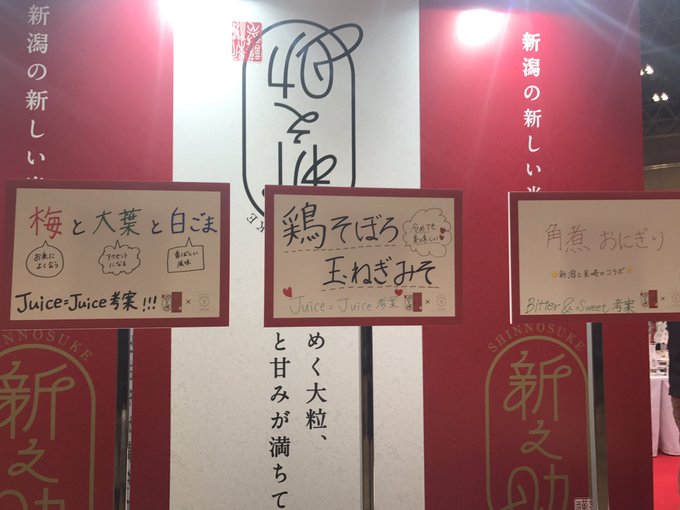 新潟の新しい
新潟の新しい
新之助
梅と大葉と白ごま
お米に
よく合う
アクセント
になる
香ばしい
風味
Juice=Juice考案!!!
×
鶏そぼろ
冷めても
美味しい
玉ねぎみそ
Juice=Juice考案
×
角煮おにぎり
新潟と長崎のコラボ
Bitter & Sweet考案
×
めく大粒、
と甘みが満ちて
SHINNOSUKE
新之助
SHINNOSUKE
新之助